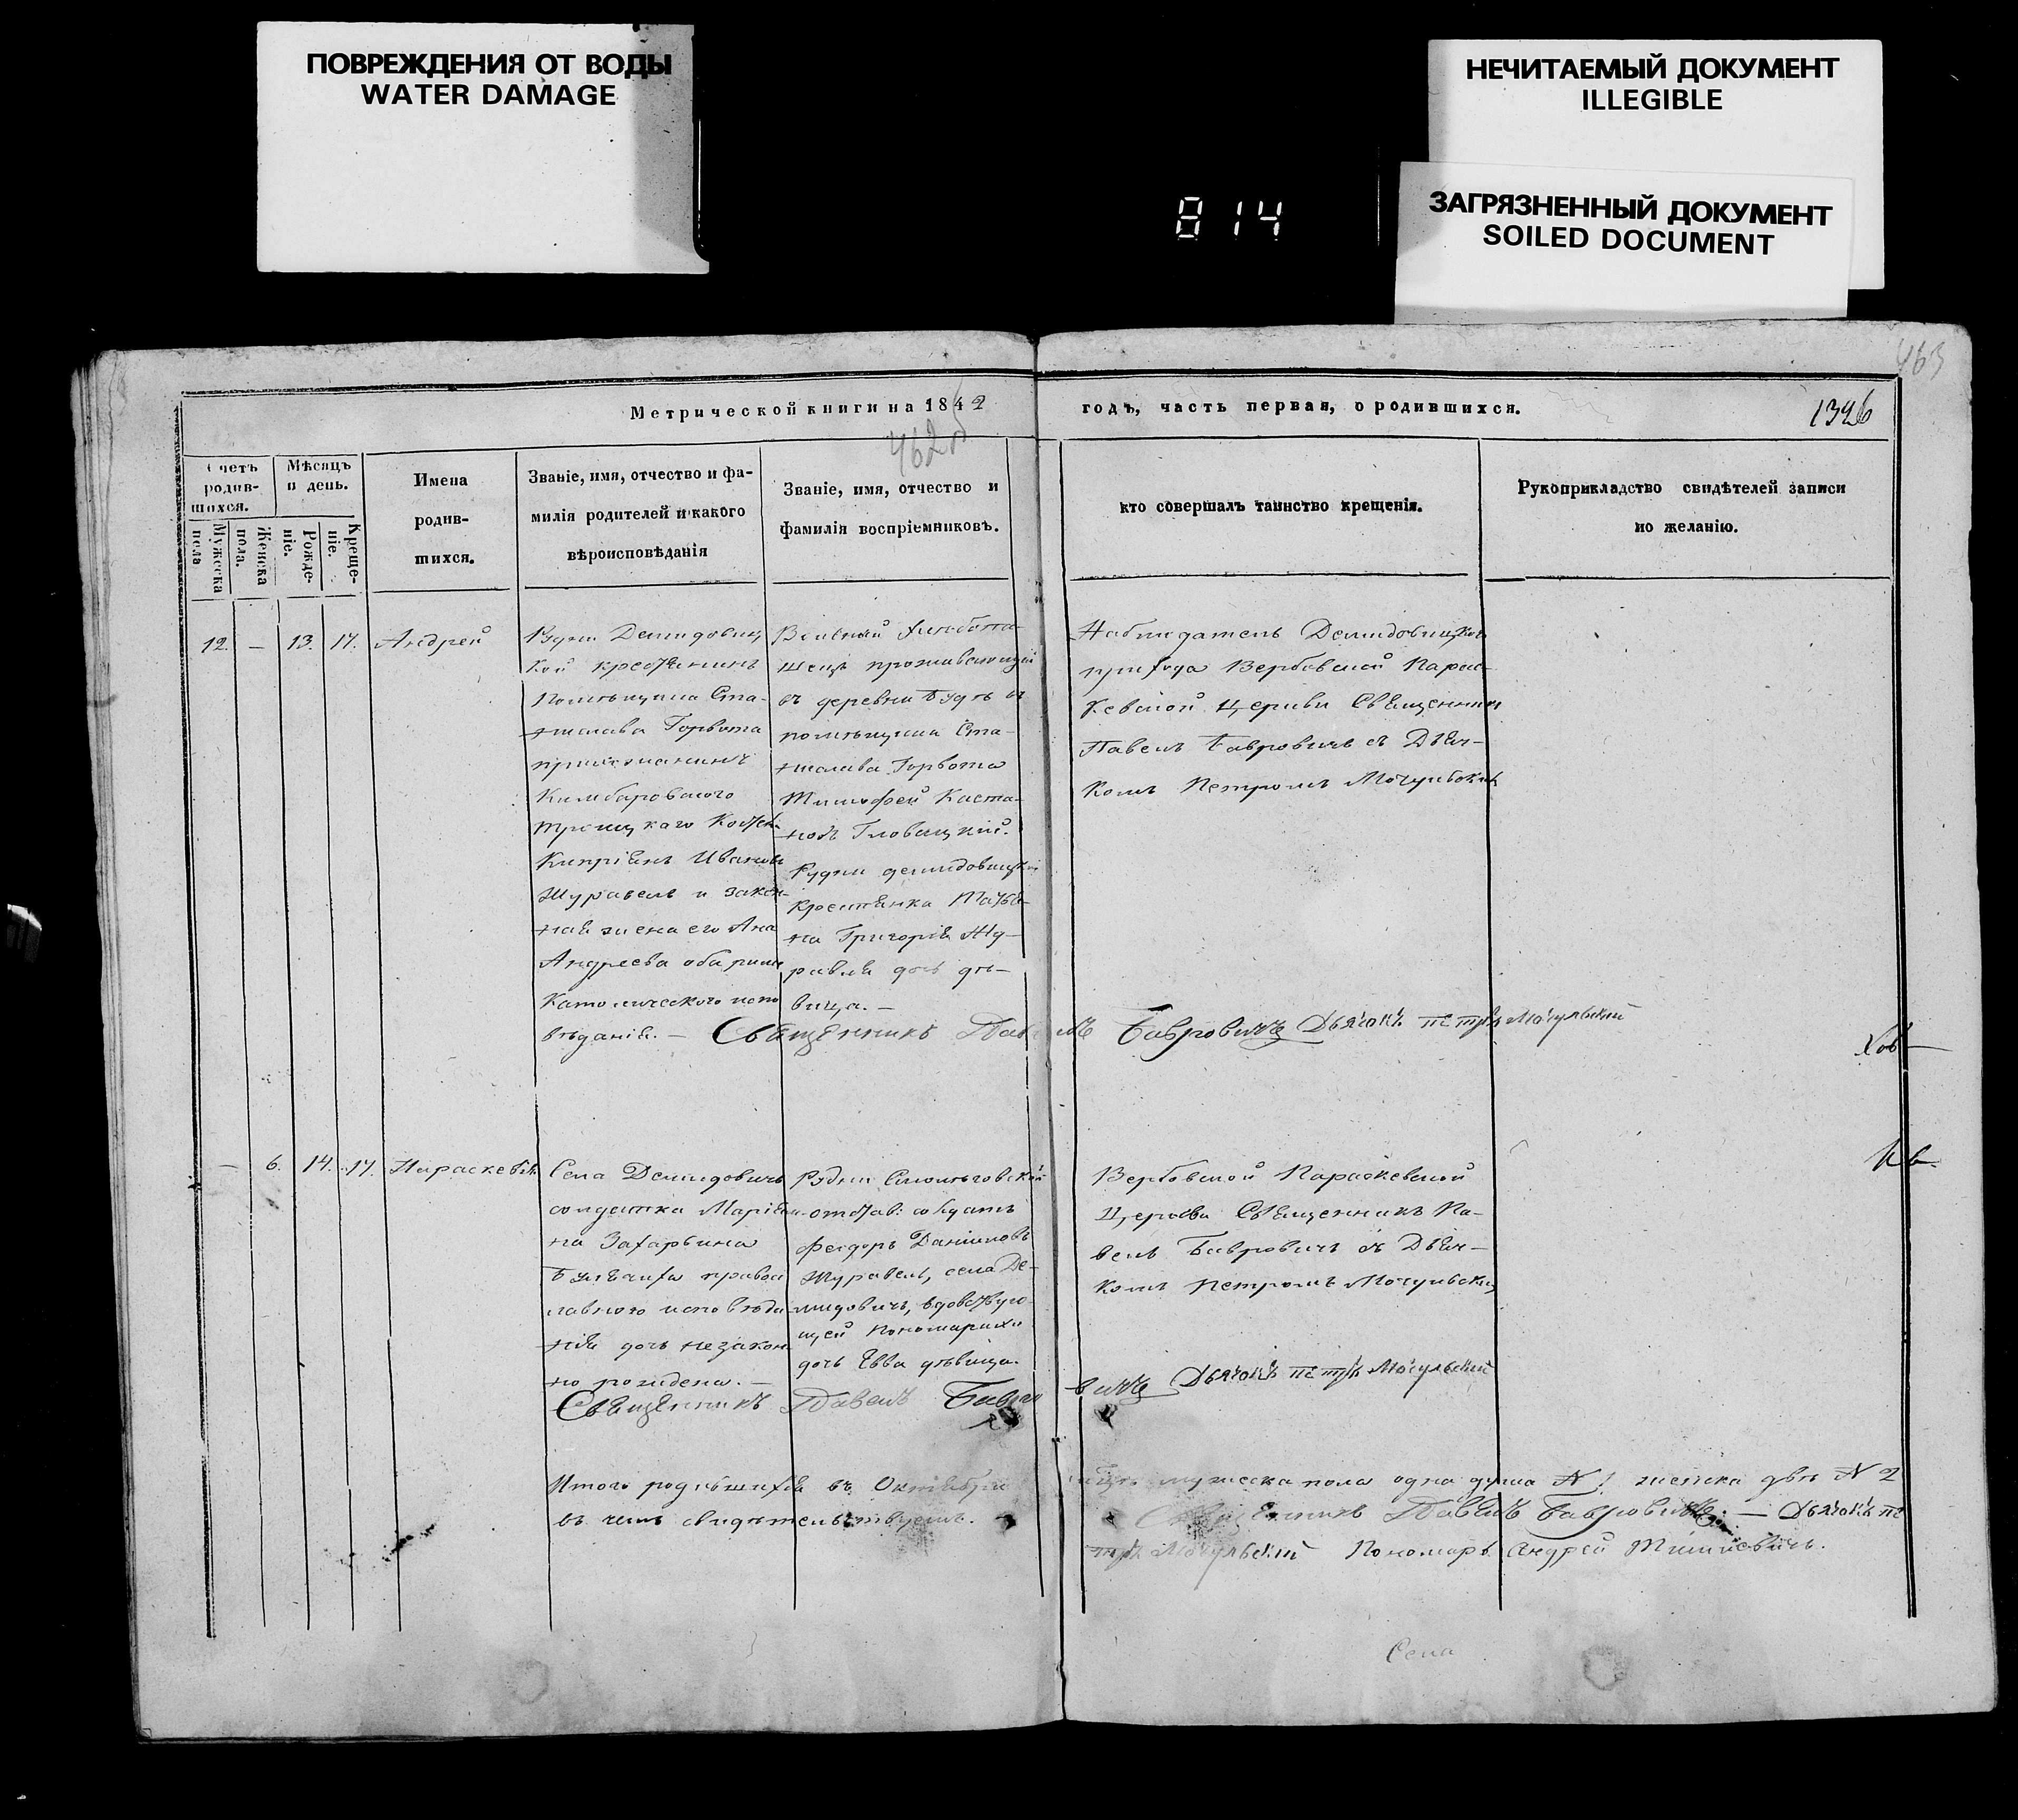 ПОВРЕЖДЕНИЯ ОТ ВОДЫ
WATER DAMAGE
НЕЧИТАЕМЫЙ ДОКУМЕНТ
ILLEGIBLE
814
ЗАГРЯЗНЕННЫЙ ДОКУМЕНТ
SOILED DOCUMENT
463
Метрической книги на 1842
годъ, часть первая, о родившихся.
1326
462
Счетъ
родив-
шихся.
Мужеска
пола
Женска
пола.
Мѣсяцъ
и день.
Рожде-
ніе.
Креще-
ніе.
Имена
родив-
шихся.
Званіе, имя, отчество и фа-
милія родителей и какого
вѣроисповѣданія
Званіе, имя, отчество и
фамилія воспріемниковъ.
кто совершалъ таинство крещенія.
Рукоприкладство свидѣтелей записи
по желанію.
12. — 13. 17. Андрей
Рудни Демидовиц
кой крестянинъ
Помѣщика Ста-
нислава Горвота
прихожанинъ
Кимбаровского
Кипріянъ Ивановъ
Журавель и закон-
ная жена его Ана
Андреева оба римс
Католического испо
вѣданія. —
проживающій
въ деревни Будѣ
помѣщика Ста-
нислава Горвота
Тимофей
Рудни демидовицкой
Крестянка
на Григорія Жу-
равля дочь дѣ-
вица. —
Наблюдатель Демидовицкого
прихода Вербовской Парас-
кевской Церкви Священник
Павелъ Бавровичъ съ Дьяч-
комъ Петромъ Мочульскимъ
Священникъ Павелъ Бавровичъ Дьячокъ Петръ Мочульский
— 6. 14. 17. Параскевія
Села Демидовичъ
солдатка Маріян-
на Захарьина
правос
лавного исповѣда
нія дочь незакон
но рождена. —
Рудни
отстав: солдатъ
Феодоръ Даниловъ
Журавель, села Де-
мидовичъ, вдовствую-
щей Пономарихи
дочь Евва дѣвица.
Вербовской Параскевской
Церкви Священникъ Па-
велъ Бавровичъ съ Дьяч-
комъ Петромъ Мочульским
Священникъ Павелъ Бавровичъ Дьячокъ Петръ Мочульский
Итого родившихся въ Октябрѣ мужеска пола одна душа № 1 женска двѣ № 2
въ чемъ свидѣтельствуемъ. Священникъ Павелъ Бавровичъ. — Дьячокъ Пе
тръ Мочульский Пономарь Андрей
Села